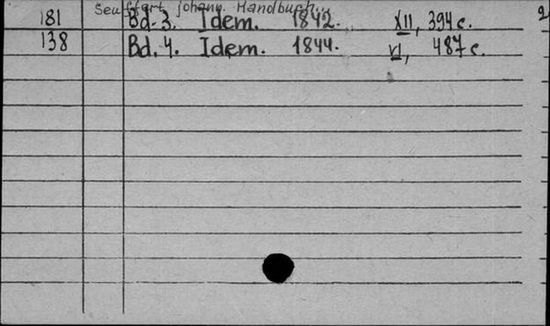 Seuffert, Johann. Handbuch...
181 Bd. 3. Idem. 1842. XII, 394 с.
138 Bd. 4. Idem. 1844. VI, 487 с.
2